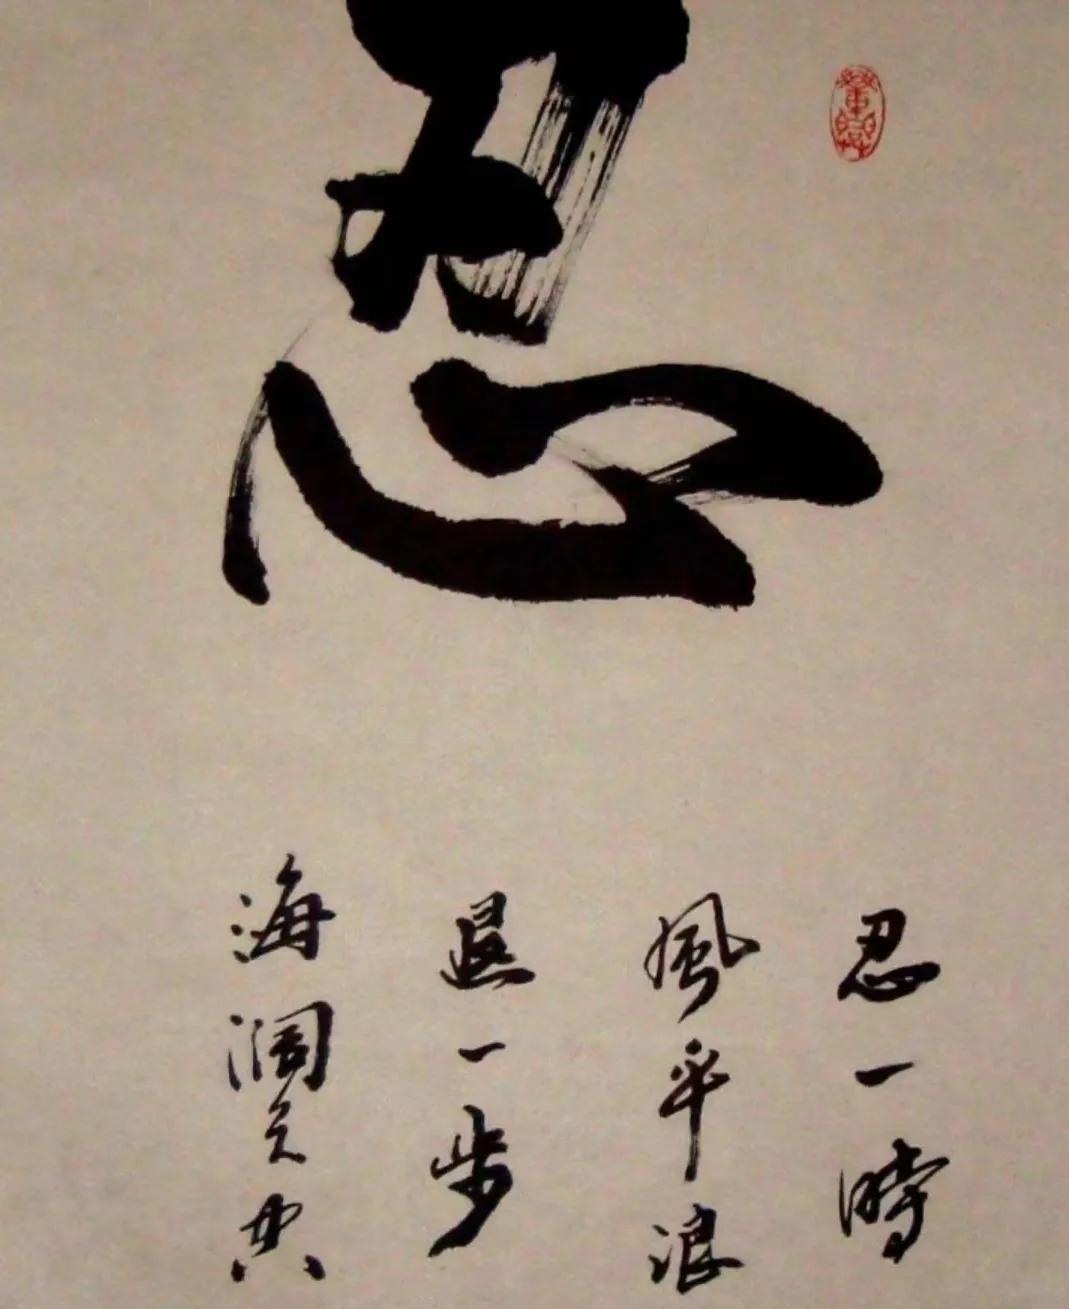 忍
忍一時
風平浪
退一步
海濶天空